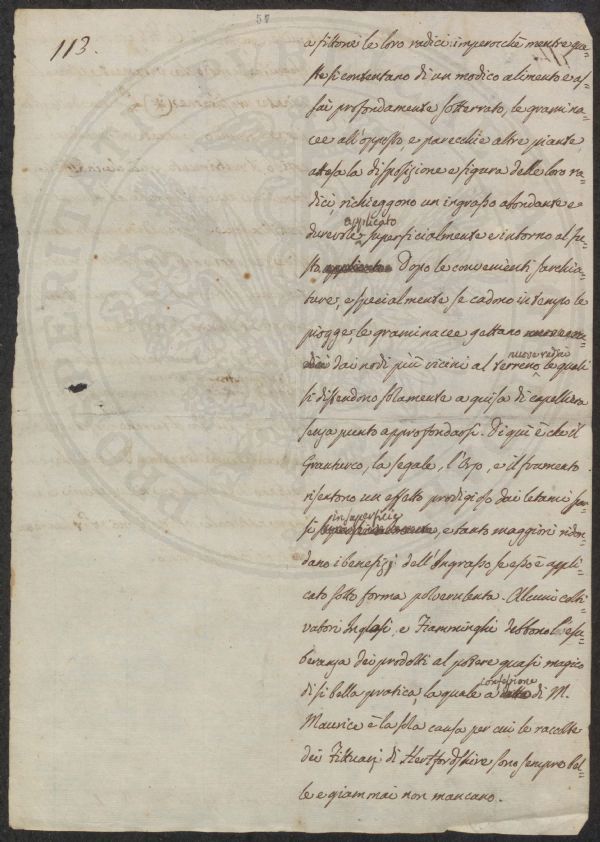 57
113.
a fittone le loro radici: imperocchè mentre que=
ste si contentano di un modico alimento e as=
sai profondamente sotterrato, le gramina=
cee all'opposto, e parecchie altre piante,
attesa la disposizione e figura delle loro ra=
dici, richieggono un ingrasso abbondante e
durevole applicato superficialmente e intorno al fu=
sto. applicato Dopo le convenienti sarchia=
ture, e specialmente se cadono in tempo le
piogge, le graminacee gettano nuove ra=
dici dai nodi più vicini al terreno nuove radici le quali
si distendono solamente a guisa di capelliera
senza punto approfondarsi. Di qui è che il
Granturco, la segale, l'Orzo, e il frumento
risentono un effetto prodigioso dai letami spar=
si in superficie, e tanto maggiori ridon=
dano i benefizj dell'Ingrasso se esso è appli=
cato sotto forma polverulenta. Alcuni colti=
vatori Inglesi, e Fiamminghi debbono l'esu=
beranza dei prodotti al potere quasi magico
di sì bella pratica, la quale a confessione di M.
Maurice è la sola causa per cui le raccolte
dei Fittuarj di Hertfordshire sono sempre bel=
le e giammai non mancano.